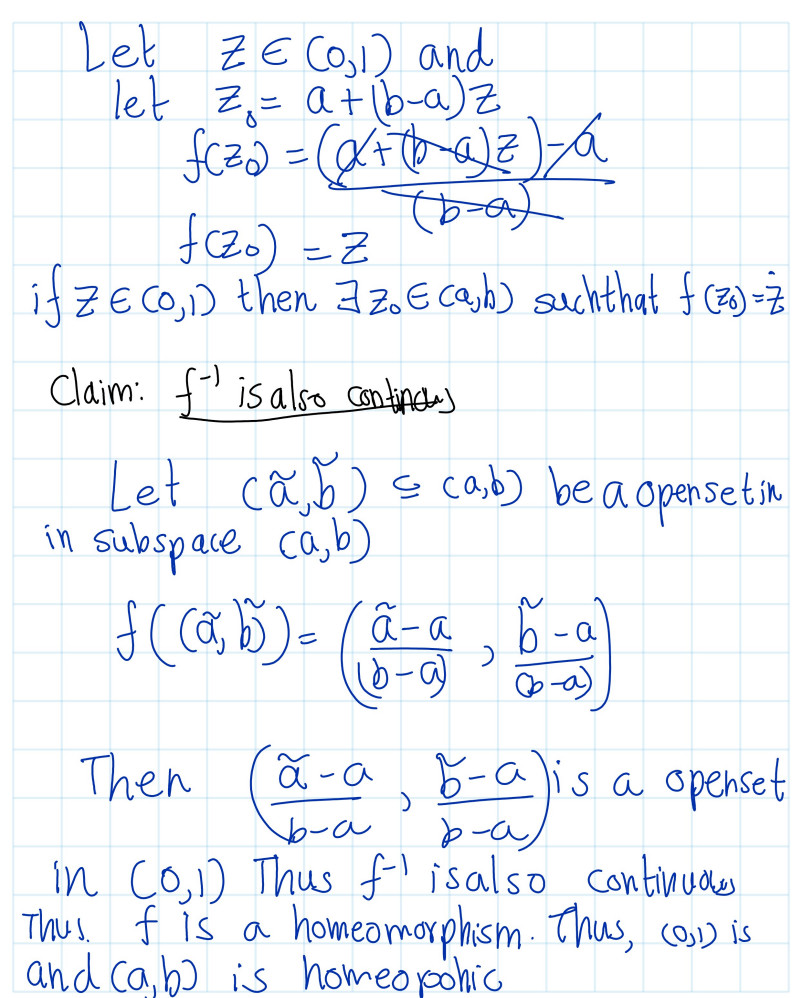 Let z ∈ (0,1) and
let z₀ = a+(b-a)z
f(z₀) = (a+(b-a)z)-a / (b-a)
f(z₀) = z
if z ∈ (0,1) then ∃ z₀ ∈ (a,b) suchthat f(z₀)=z
Claim: f⁻¹ is also continous
Let (ã, b̃) ⊆ (a,b) be a openset in
in subspace (a,b)
f((ã, b̃)) = (ã-a / (b-a) , b̃-a / (b-a))
Then (ã-a / b-a , b̃-a / b-a) is a openset
in (0,1) Thus f⁻¹ is also continuous
Thus. f is a homeomorphism. Thus, (0,1) is
and (a,b) is homeopohic